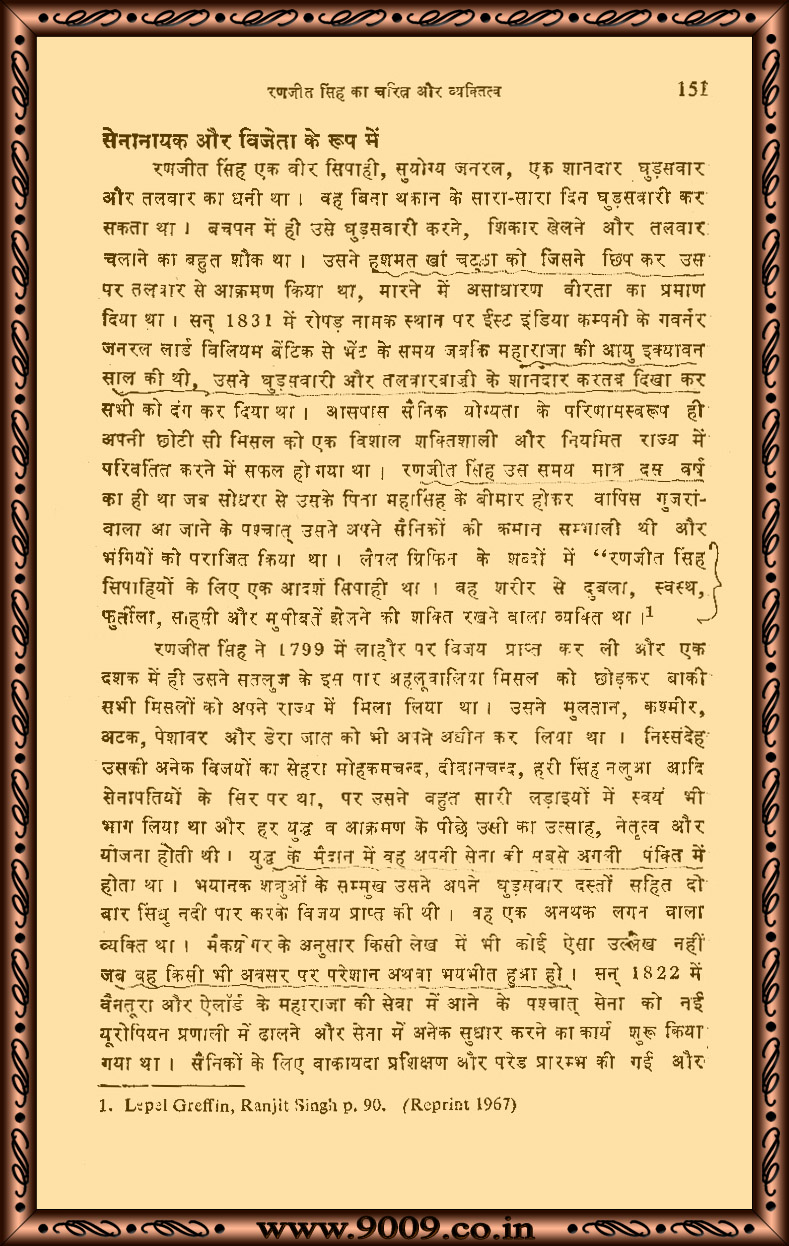 रणजीत सिंह का चरित्र और व्यक्तित्व 151
सेनानायक और विजेता के रूप में
रणजीत सिंह एक वीर सिपाही, सुयोग्य जनरल, एक शानदार घुड़सवार
और तलवार का धनी था। वह बिना थकान के सारा-सारा दिन घुड़सवारी कर
सकता था। बचपन में ही उसे घुड़सवारी करने, शिकार खेलने और तलवार
चलाने का बहुत शौक था। उसने हशमत खां चट्ठा को जिसने छिप कर उस
पर तलवार से आक्रमण किया था, मारने में असाधारण वीरता का प्रमाण
दिया था। सन् 1831 में रोपड़ नामक स्थान पर ईस्ट इंडिया कम्पनी के गवर्नर
जनरल लार्ड विलियम बेंटिक से भेंट के समय जबकि महाराजा की आयु इक्यावन
साल की थी, उसने घुड़सवारी और तलवारबाजी के शानदार करतब दिखा कर
सभी को दंग कर दिया था। आसपास सैनिक योग्यता के परिणामस्वरूप ही
अपनी छोटी सी मिसल को एक विशाल शक्तिशाली और नियमित राज्य में
परिवर्तित करने में सफल हो गया था। रणजीत सिंह उस समय मात्र दस वर्ष
का ही था जब सोधरा से उसके पिता महासिंह के बीमार होकर वापिस गुजरां-
वाला आ जाने के पश्चात् उसने अपने सैनिकों की कमान सम्भाली थी और
भंगियों को पराजित किया था। लैपल ग्रिफिन के शब्दों में “रणजीत सिंह
सिपाहियों के लिए एक आदर्श सिपाही था। वह शरीर से दुबला, स्वस्थ,
फुर्तीला, साहसी और मुसीबतें झेलने की शक्ति रखने वाला व्यक्ति था।1
रणजीत सिंह ने 1799 में लाहौर पर विजय प्राप्त कर ली और एक
दशक में ही उसने सतलुज के इस पार अहलूवालिया मिसल को छोड़कर बाकी
सभी मिसलों को अपने राज्य में मिला लिया था। उसने मुलतान, कश्मीर,
अटक, पेशावर और डेरा जात को भी अपने अधीन कर लिया था । निस्संदेह
उसकी अनेक विजयों का सेहरा मोहकमचन्द, दीवानचन्द, हरी सिंह नलुआ आदि
सेनापतियों के सिर पर था, पर उसने बहुत सारी लड़ाइयों में स्वयं भी
भाग लिया था और हर युद्ध व आक्रमण के पीछे उसी का उत्साह, नेतृत्व और
योजना होती थी। युद्ध के मैदान में वह अपनी सेना की सबसे अगली पंक्ति में
होता था। भयानक शत्रुओं के सम्मुख उसने अपने घुड़सवार दस्तों सहित दो
बार सिंधु नदी पार करके विजय प्राप्त की थी। वह एक अनथक लगन वाला
व्यक्ति था। मैकग्रेगर के अनुसार किसी लेख में भी कोई ऐसा उल्लेख नहीं
जब वह किसी भी अवसर पर परेशान अथवा भयभीत हुआ हो। सन् 1822 में
वैनतूरा और ऐलॉर्ड के महाराजा की सेवा में आने के पश्चात् सेना को नई
यूरोपियन प्रणाली में ढालने और सेना में अनेक सुधार करने का कार्य शुरू किया
गया था। सैनिकों के लिए वाकायदा प्रशिक्षण और परेड प्रारम्भ की गई और
1. Lepel Greffin, Ranjit Singh p. 90. (Reprint 1967)
www.9009.co.in